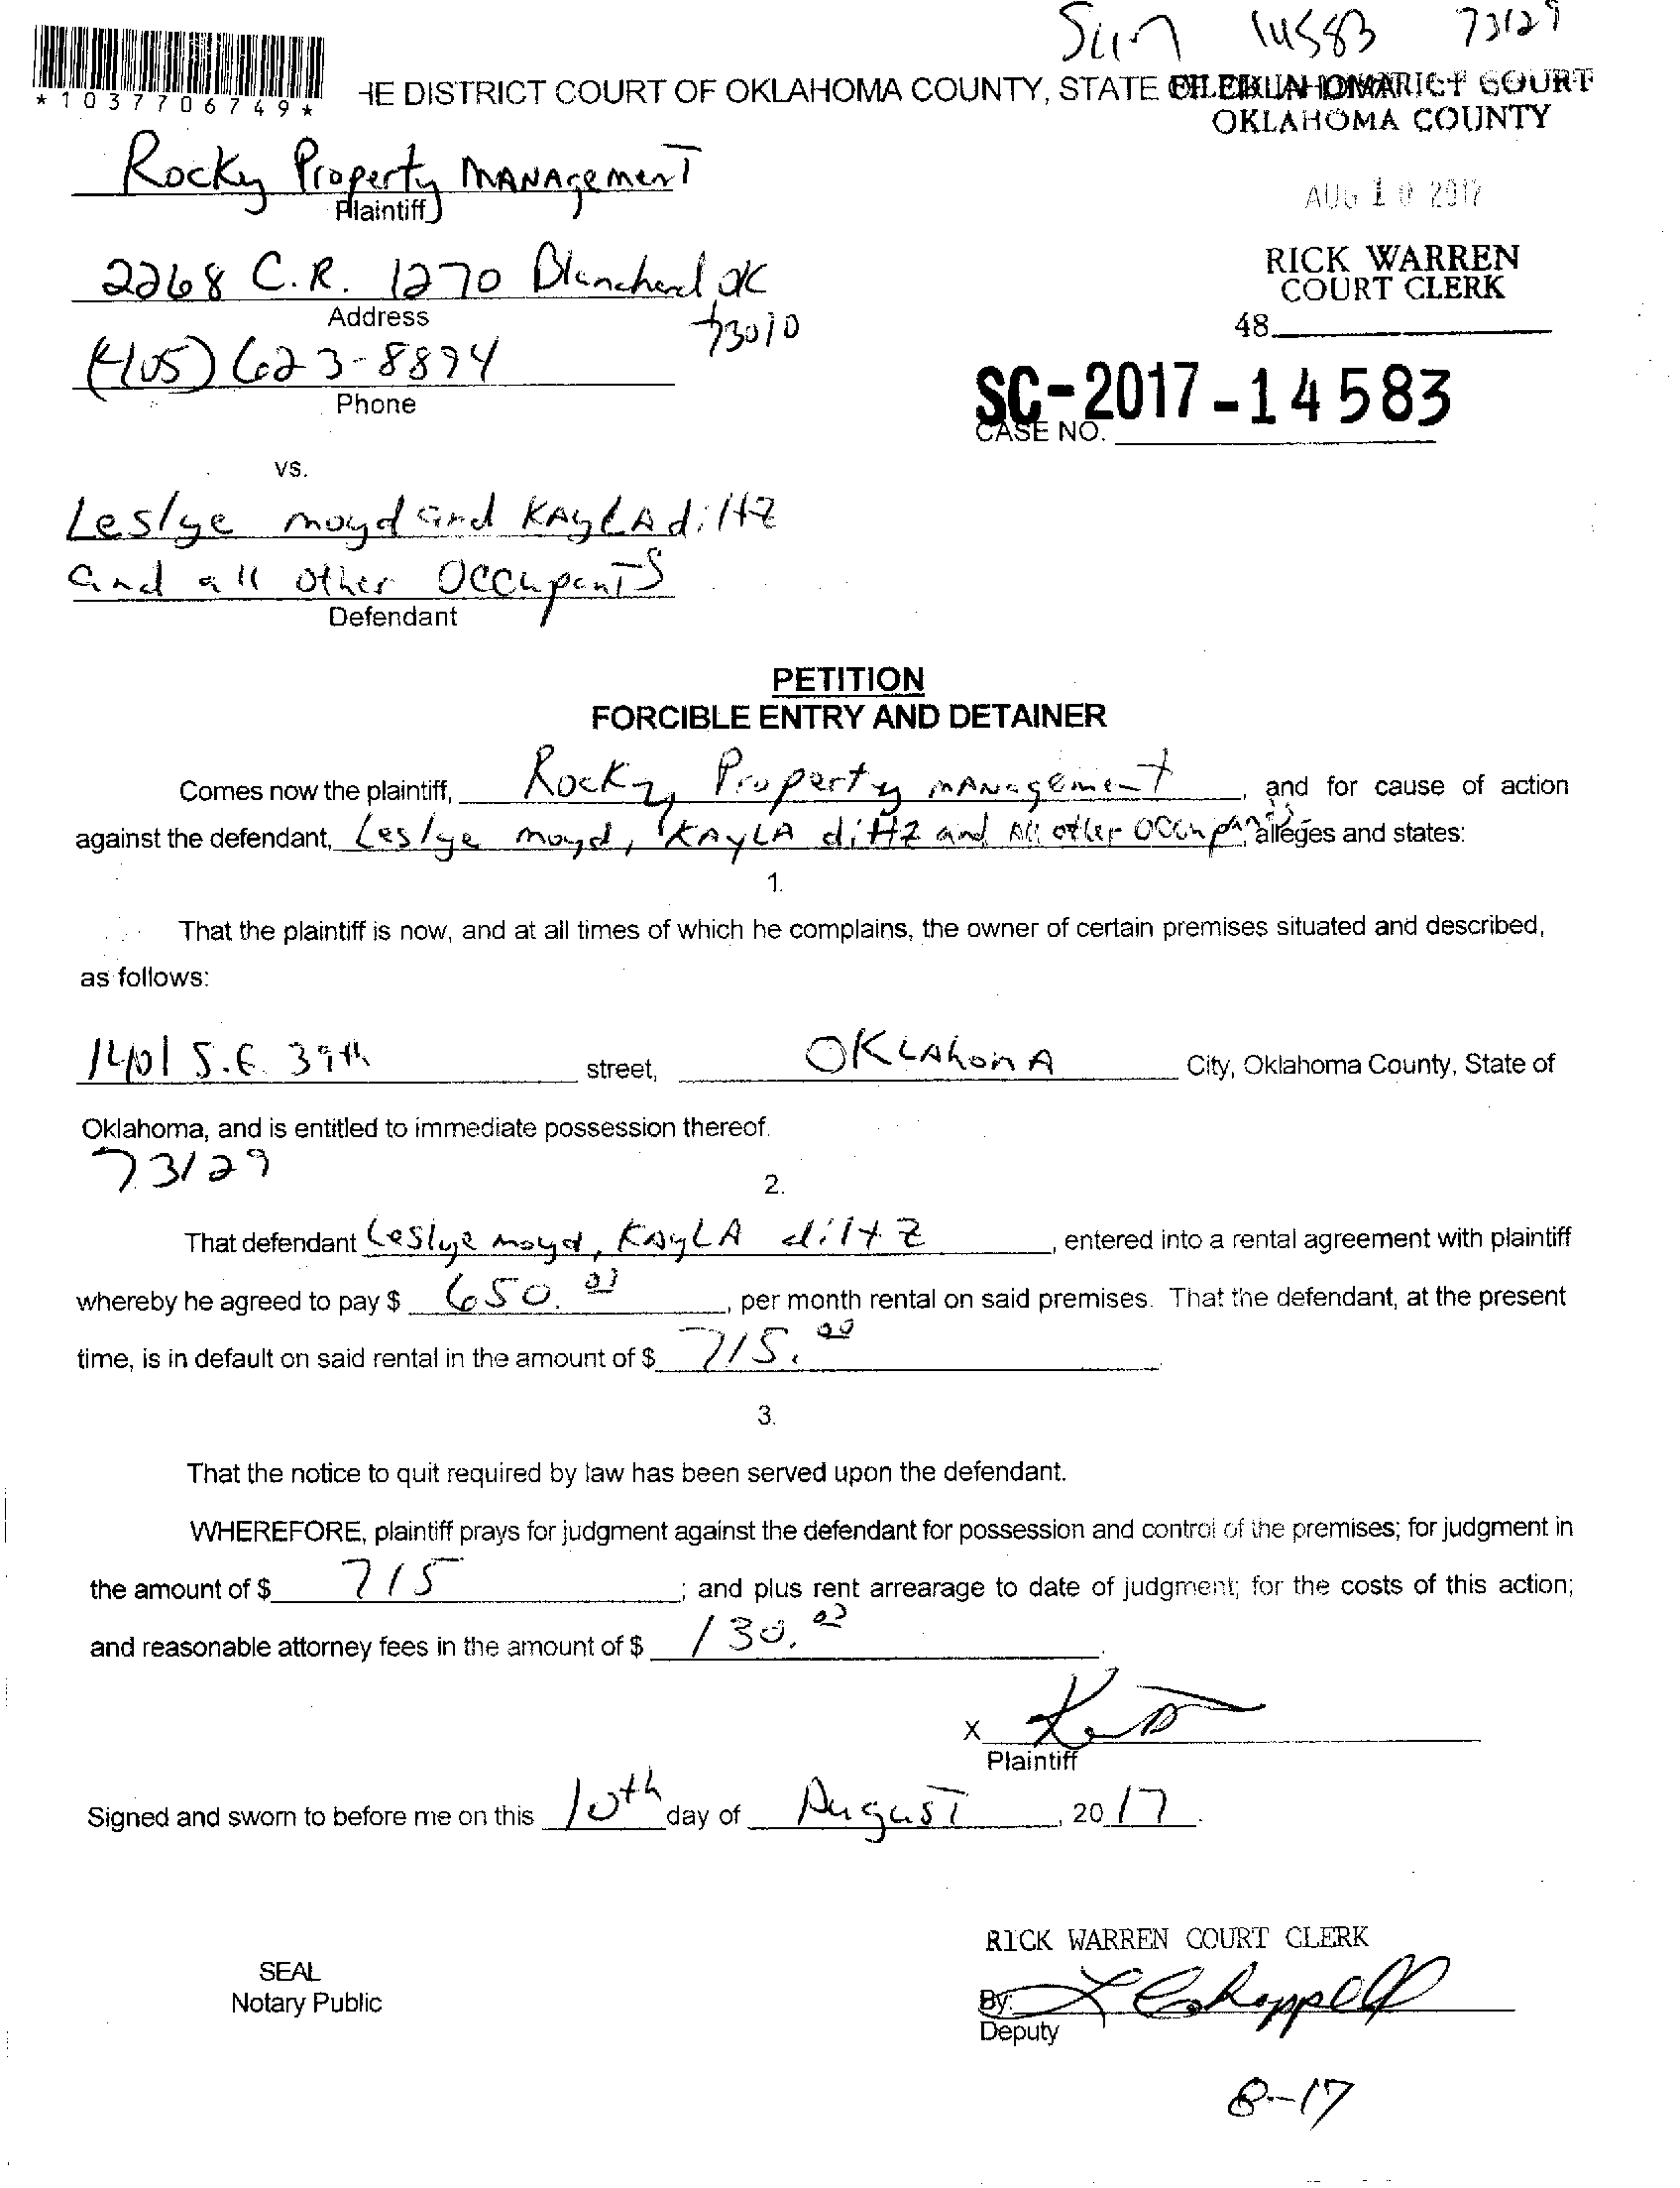 Sum 14583 73129
*1037706749*
HE DISTRICT COURT OF OKLAHOMA COUNTY, STATE
COURT
OKLAHOMA COUNTY
Rocky Property MANAgemenT
Plaintiff
AUG 10 2017
2268 C.R. 1270 Blanchard OK
73010
Address
RICK WARREN
COURT CLERK
48
(405) 623-8894
Phone
SC-2017-14583
CASE NO.
vs.
Leslye moyd and KAyLA diltz
and all other OccupanTS
Defendant
PETITION
FORCIBLE ENTRY AND DETAINER
Comes now the plaintiff, Rocky Property mANagement, and for cause of action
against the defendant, Leslye moyd, KAyLA diltz and All other Occupants alleges and states:
1.
That the plaintiff is now, and at all times of which he complains, the owner of certain premises situated and described,
as follows:
1401 S.E. 39th street, OKLAhomA City, Oklahoma County, State of
Oklahoma, and is entitled to immediate possession thereof.
73129
2.
That defendant Leslye moyd, KAyLA diltz, entered into a rental agreement with plaintiff
whereby he agreed to pay $ 650.00, per month rental on said premises. That the defendant, at the present
time, is in default on said rental in the amount of $ 715.00.
3.
That the notice to quit required by law has been served upon the defendant.
WHEREFORE, plaintiff prays for judgment against the defendant for possession and control of the premises; for judgment in
the amount of $ 715; and plus rent arrearage to date of judgment; for the costs of this action;
and reasonable attorney fees in the amount of $ 130.00.
X
Plaintiff
Signed and sworn to before me on this 10th day of AugusT, 2017.
RICK WARREN COURT CLERK
SEAL
Notary Public
By:
Deputy
8-17